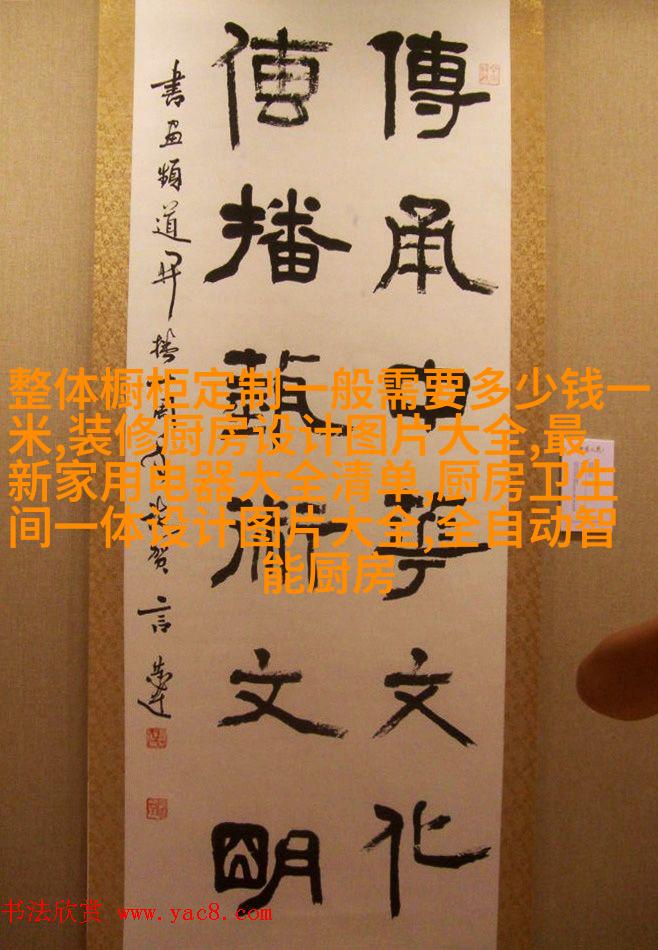 傳承中華文化
傳播藝術文明
書画頻道開播
賀
言
整体橱柜定制一般需要多少钱一
米,装修厨房设计图片大全,最
新家用电器大全清单,厨房卫生
间一体设计图片大全,全自动智
能厨房
书法欣赏 www.yac8.com